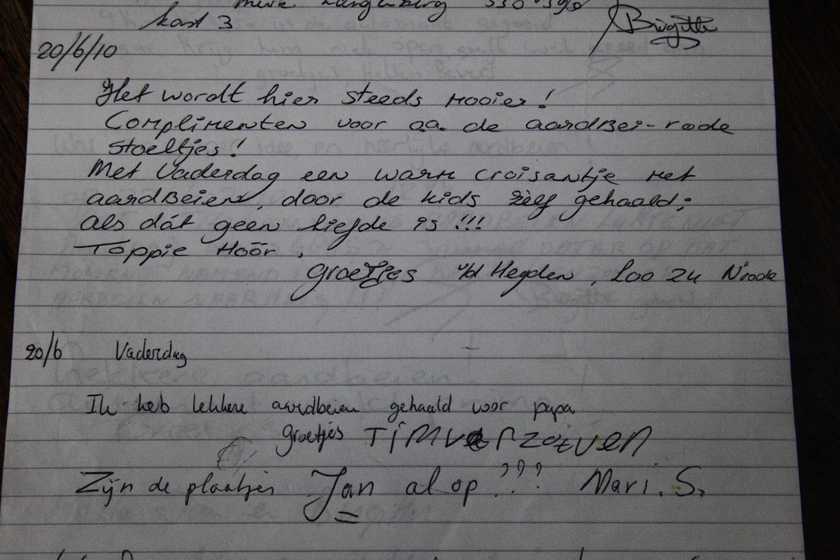 kast 3
Birgitte
20/6/10
Het wordt hier steeds mooier!
Complimenten voor aa de aardbei-rode
stoeltjes!
Met Vaderdag een warm croisantje met
aardbeien, door de kids zelf gehaald;
als dát geen liefde is!!!
Toppie Hoor.
groetjes v/d Heyden, Loo 24 N'rode
20/6 Vaderdag
Ik heb lekkere aardbeien gehaald voor papa
groetjes Tim
Zijn de plaatjes Jan al op??? Mari. S.